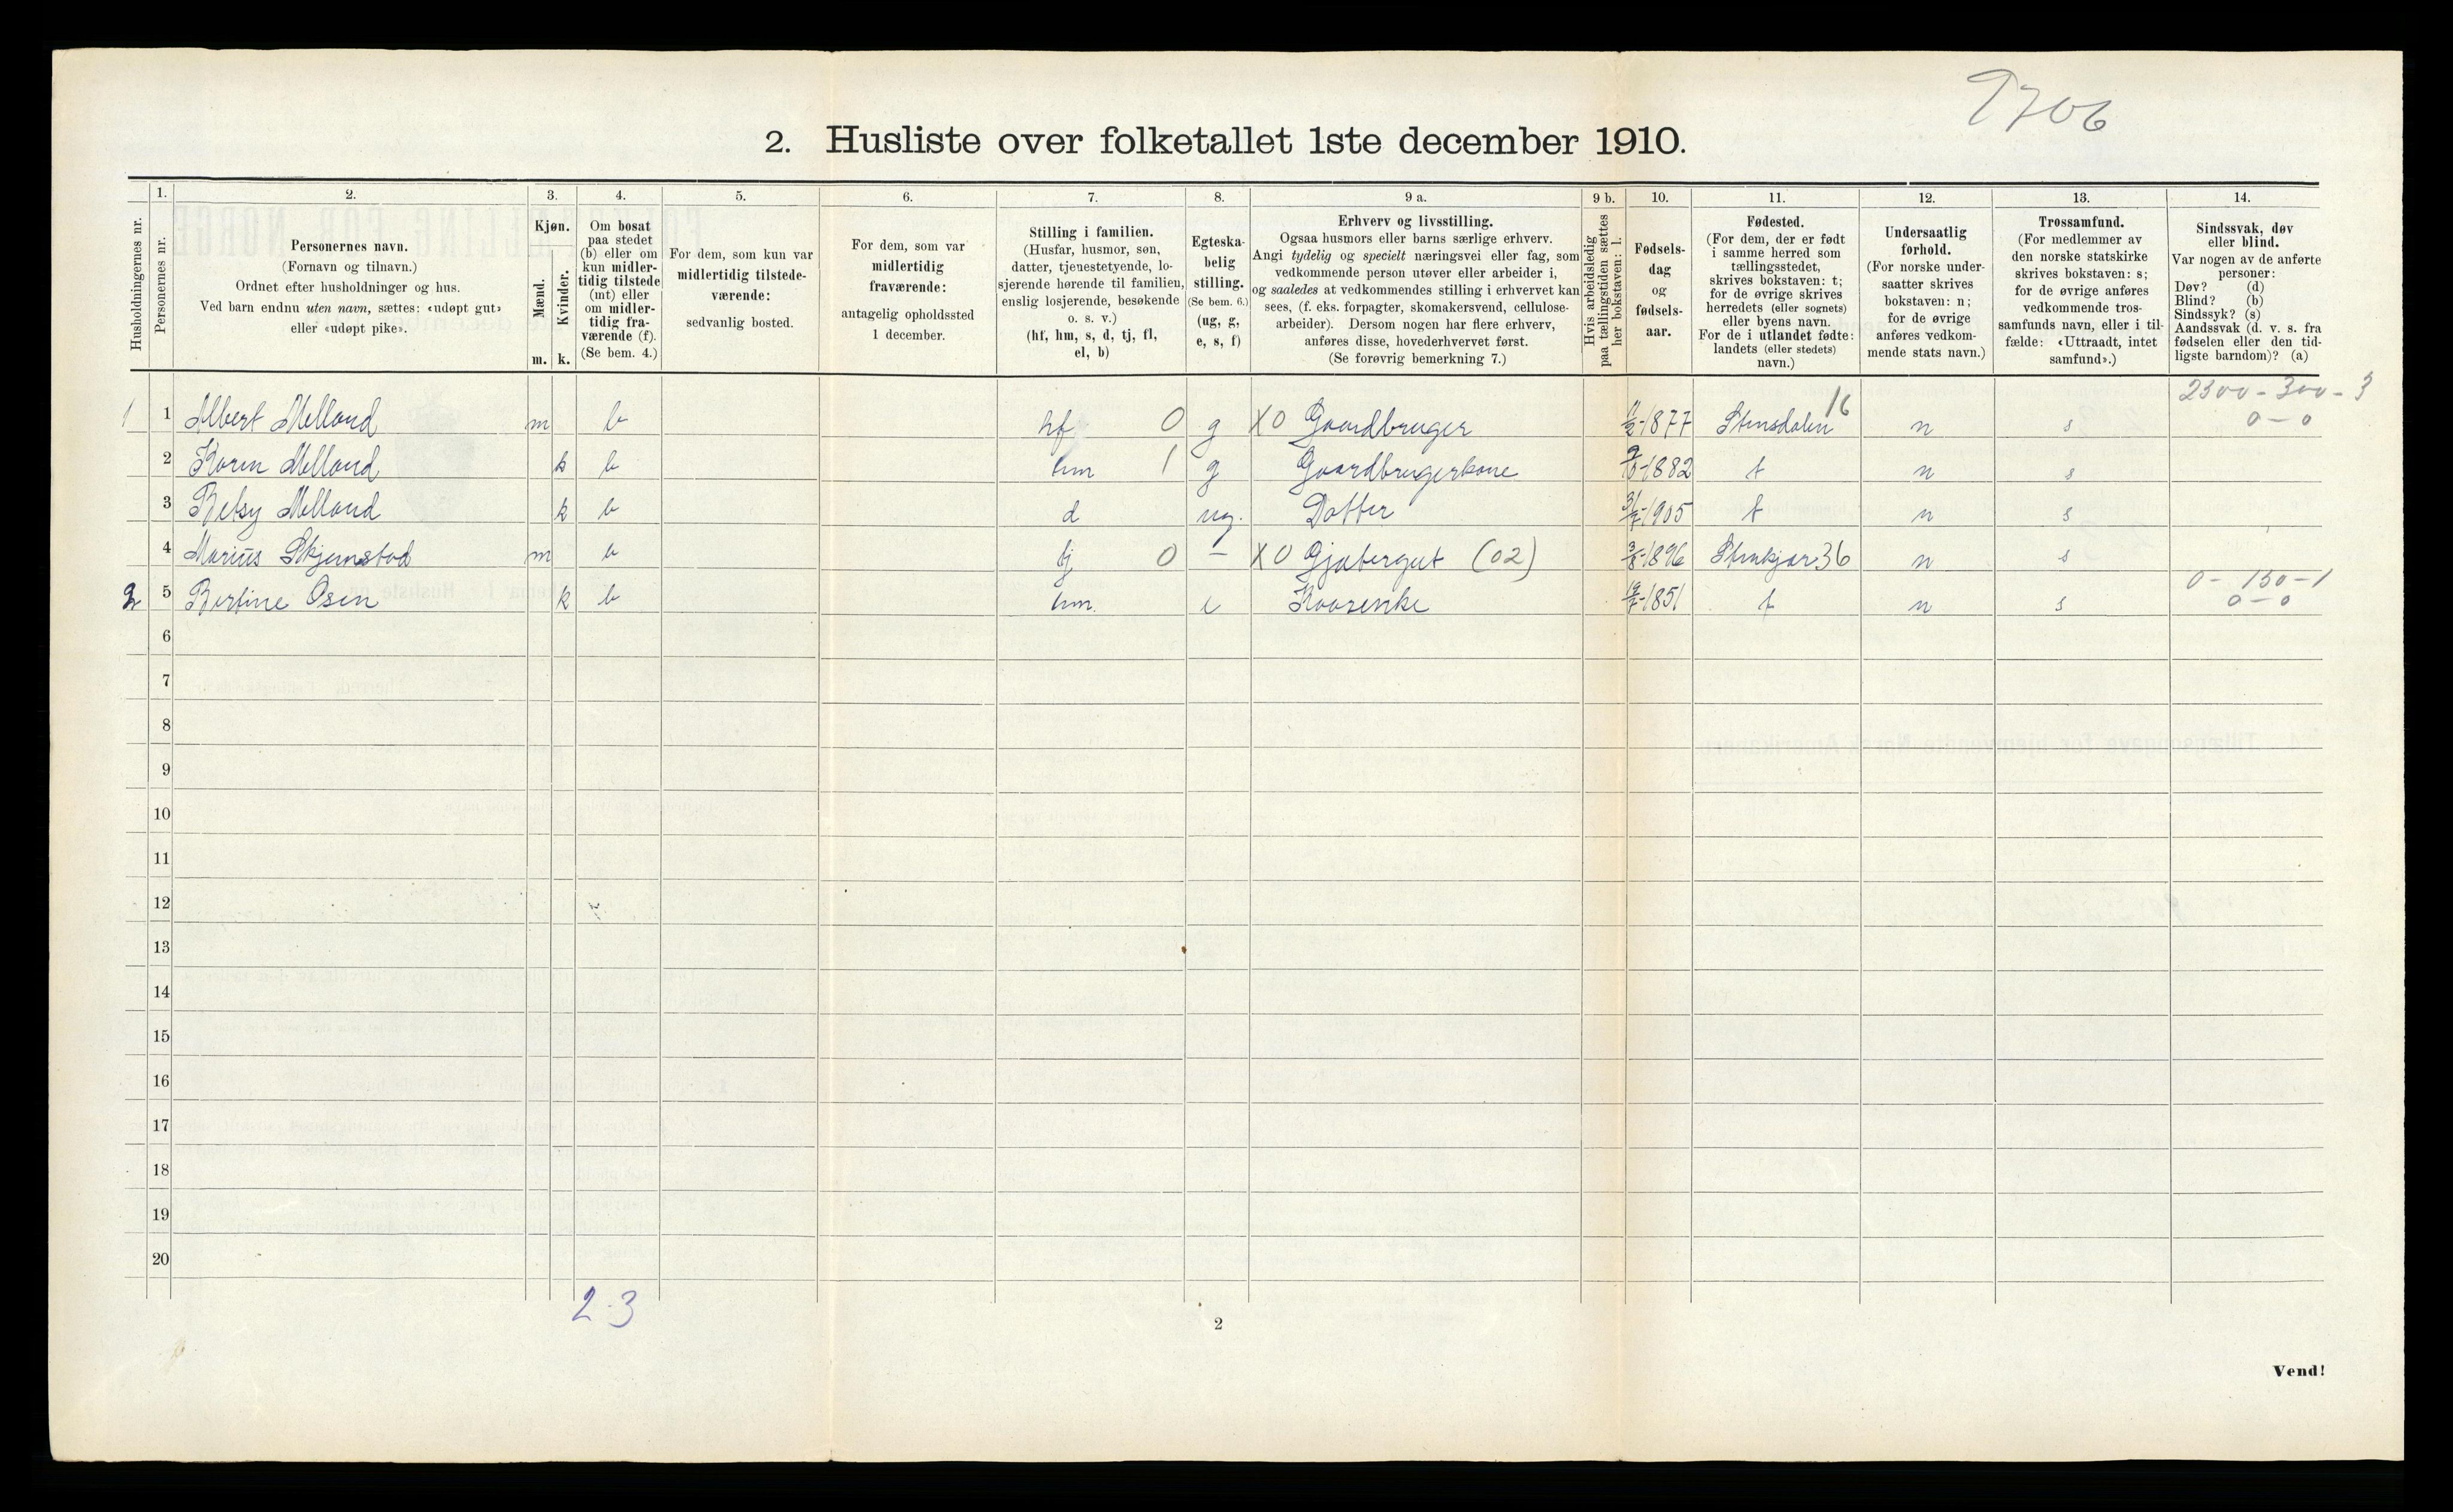 9706
2. Husliste over folketallet 1ste december 1910.
Husholdningernes nr.
1.
Personernes nr.
2.
Personernes navn.
(Fornavn og tilnavn.)
Ordnet efter husholdninger og hus.
Ved barn endnu uten navn, sættes: «udøpt gut»
eller «udøpt pike».
3.
Kjøn.
Mænd.
Kvinder.
m. k.
4.
Om bosat
paa stedet
(b) eller om
kun midler-
tidig tilstede
(mt) eller
om midler-
tidig fra-
værende (f).
(Se bem. 4.)
5.
For dem, som kun var
midlertidig tilstede-
værende:
sedvanlig bosted.
6.
For dem, som var
midlertidig
fraværende:
antagelig opholdssted
1 december.
7.
Stilling i familien.
(Husfar, husmor, søn,
datter, tjenestetyende, lo-
sjerende hørende til familien,
enslig losjerende, besøkende
o. s. v.)
(hf, hm, s, d, tj, fl,
el, b)
8.
Egteska-
belig
stilling.
(Se bem. 6.)
(ug, g,
e, s, f)
9 a.
Erhverv og livsstilling.
Ogsaa husmors eller barns særlige erhverv.
Angi tydelig og specielt næringsvei eller fag, som
vedkommende person utøver eller arbeider i,
og saaledes at vedkommendes stilling i erhvervet kan
sees, (f. eks. forpagter, skomakersvend, cellulose-
arbeider). Dersom nogen har flere erhverv,
anføres disse, hovederhvervet først.
(Se forøvrig bemerkning 7.)
9 b.
Hvis arbeidsledig
paa tællingstiden sættes
her bokstaven: l.
10.
Fødsels-
dag
og
fødsels-
aar.
11.
Fødested.
(For dem, der er født
i samme herred som
tællingsstedet,
skrives bokstaven: t;
for de øvrige skrives
herredets (eller sognets)
eller byens navn.
For de i utlandet fødte:
landets (eller stedets)
navn.)
12.
Undersaatlig
forhold.
(For norske under-
saatter skrives
bokstaven: n;
for de øvrige
anføres vedkom-
mende stats navn.)
13.
Trossamfund.
(For medlemmer av
den norske statskirke
skrives bokstaven: s;
for de øvrige anføres
vedkommende tros-
samfunds navn, eller i til-
fælde: «Uttraadt, intet
samfund».)
14.
Sindssvak, døv
eller blind.
Var nogen av de anførte
personer:
Døv? (d)
Blind? (b)
Sindssyk? (s)
Aandssvak (d. v. s. fra
fødselen eller den tid-
ligste barndom)? (a)
2300 - 300 - 3
1 1 Albert Melland m b hf 0 g X0 Gaardbruger 11/2-1877 Stensdalen 16 n s 0 - 0
2 Karen Melland k b hm 1 g Gaardbrugerkone 1882 t n s
3 Betsy Melland k b d ug. Datter 1905 t n s
4 Marius Skjemstad m b tj 0 - X0 Gjætergut (02) 3/8-1896 Stenkjær 36 n s
0 - 150 - 1
2 5 Bertine Osen k b hm. e Kaarenke 1851 t n s 0 - 0
6
7
8
9
10
11
12
13
14
15
16
17
18
19
20
2-3
2
Vend!